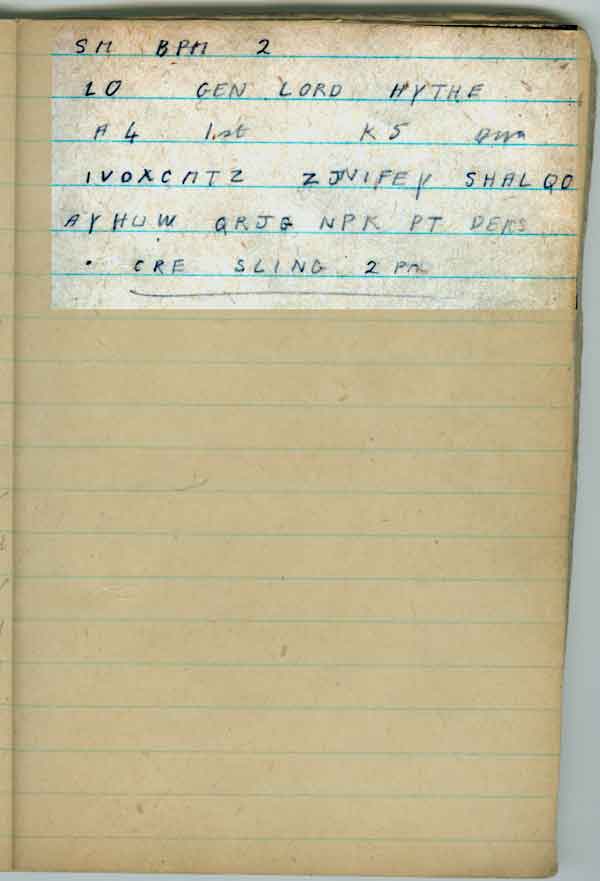 SM BPM 2
LO GEN LORD HYTHE
A 4 1.st K 5
IVOXCMTZ ZJVIFEY SHALQO
AYHUW QRJG NPK PT DEKS
. CRE SLING 2 PM